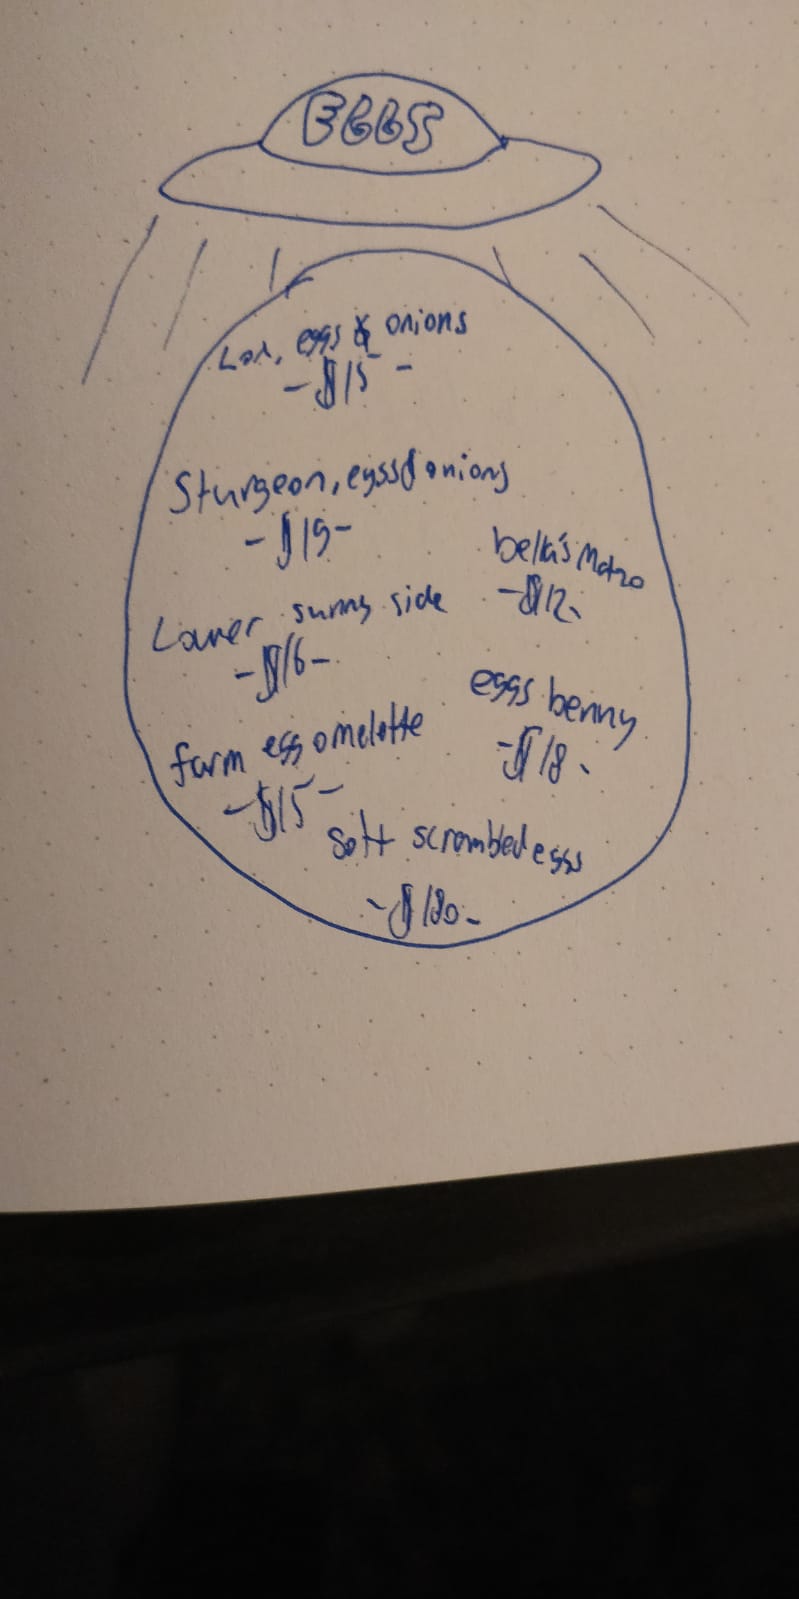 EGGS
Lox, eggs & onions
-$15-
Sturgeon, eggs & onions
-$19-
bella's Matzo
-$12-
Lower sunny side
-$16-
eggs benny
-$18-
farm egg omelette
-$15-
Soft scrambled eggs